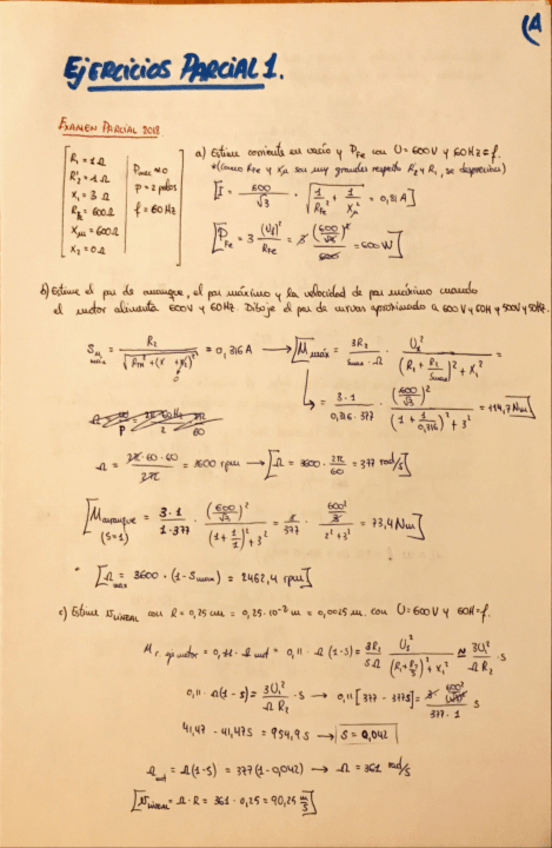 (A
EJERCICIOS PARCIAL 1.
EXAMEN PARCIAL 2018
R₁ = 1Ω
R₂' = 1Ω
X₁ = 3Ω
R_Fe = 600Ω
X_μ = 600Ω
X₂ = 0Ω
P_mec ≈ 0
p = 2 polos
f = 60 Hz
a) Estime corriente en vacío y P_Fe con U = 600V y 60Hz = f.
*(como R_Fe y X_μ son muy grandes respecto R₂' y R₁, se desprecian)
[I = 600/√3 · √(1/R_Fe² + 1/X_μ²) = 0,81 A]
[P_Fe = 3 (U₁)²/R_Fe = 3 (600/√3)²/600 = 600 W]
b) Estime el par de arranque, el par máximo y la velocidad de par máximo cuando
el motor alimenta 600V y 60Hz. Dibuje el par de curvas aproximado a 600V y 60H y 500V y 50Hz
= 0,316 A → [M_máx = 3R₂/(S_max · Ω) · U₁²/((R₁ + R₂/S_max)² + X₁²) =
= 3·1/(0,316 · 377) · (600/√3)²/((1 + 1/0,316)² + 3²) = 114,7 Nm]
Ω = 2π·60·60/2π = 3600 rpm → [Ω = 3600 · 2π/60 = 377 rad/s]
[M_arranque (S=1) = 3·1/1·377 · (600/√3)²/((1 + 1/1)² + 3²) = 73,4 Nm]
[Ω_max = 3600 · (1 - S_max) = 2462,4 rpm]
c) Estime v_LINEAL con R = 0,25 cm = 0,25·10⁻² m = 0,0025 m. con U = 600V y 60H = f.
= 0,11 · Ω (1-S) = 3R₂/(SΩ) · U₁²/((R₁ + R₂/S)² + X₁²) ≈ 3U₁²/(Ω R₂) · S
0,11 · Ω(1-S) = 3U₁²/(Ω R₂) · S → 0,11 [377 - 377S] = 3· S
41,47 - 41,47S = 954,9 S → S = 0,042
= Ω(1-S) = 377(1-0,042) → Ω = 361 rad/s
[v_LINEAL = Ω · R = 361 · 0,25 = 90,25 m/s]